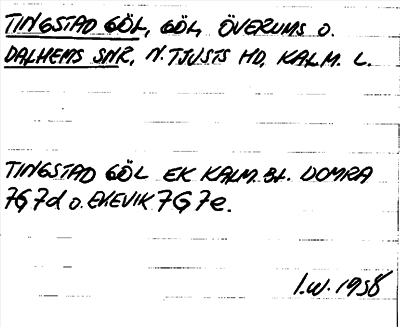 TINGSTAD GÖL, GÖL, ÖVERUMS O.
DALHEMS SNR, N. TJUSTS HD, KALM. L.
TINGSTAD GÖL EK KALM. BL. LOMRA
7G7d o. EKEVIK 7G7e.
I.W. 1958